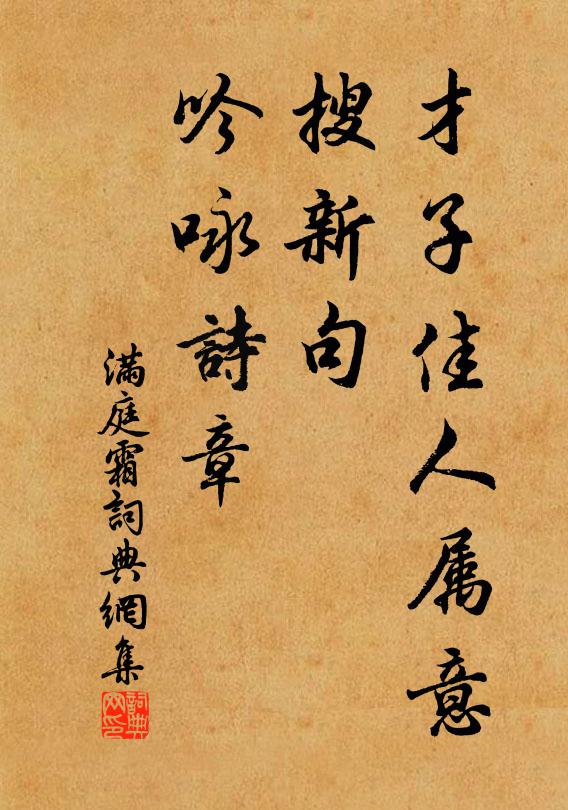 才子佳人属意
搜新句
吟咏詩章
满庭霜詞典網集
詞典
网印